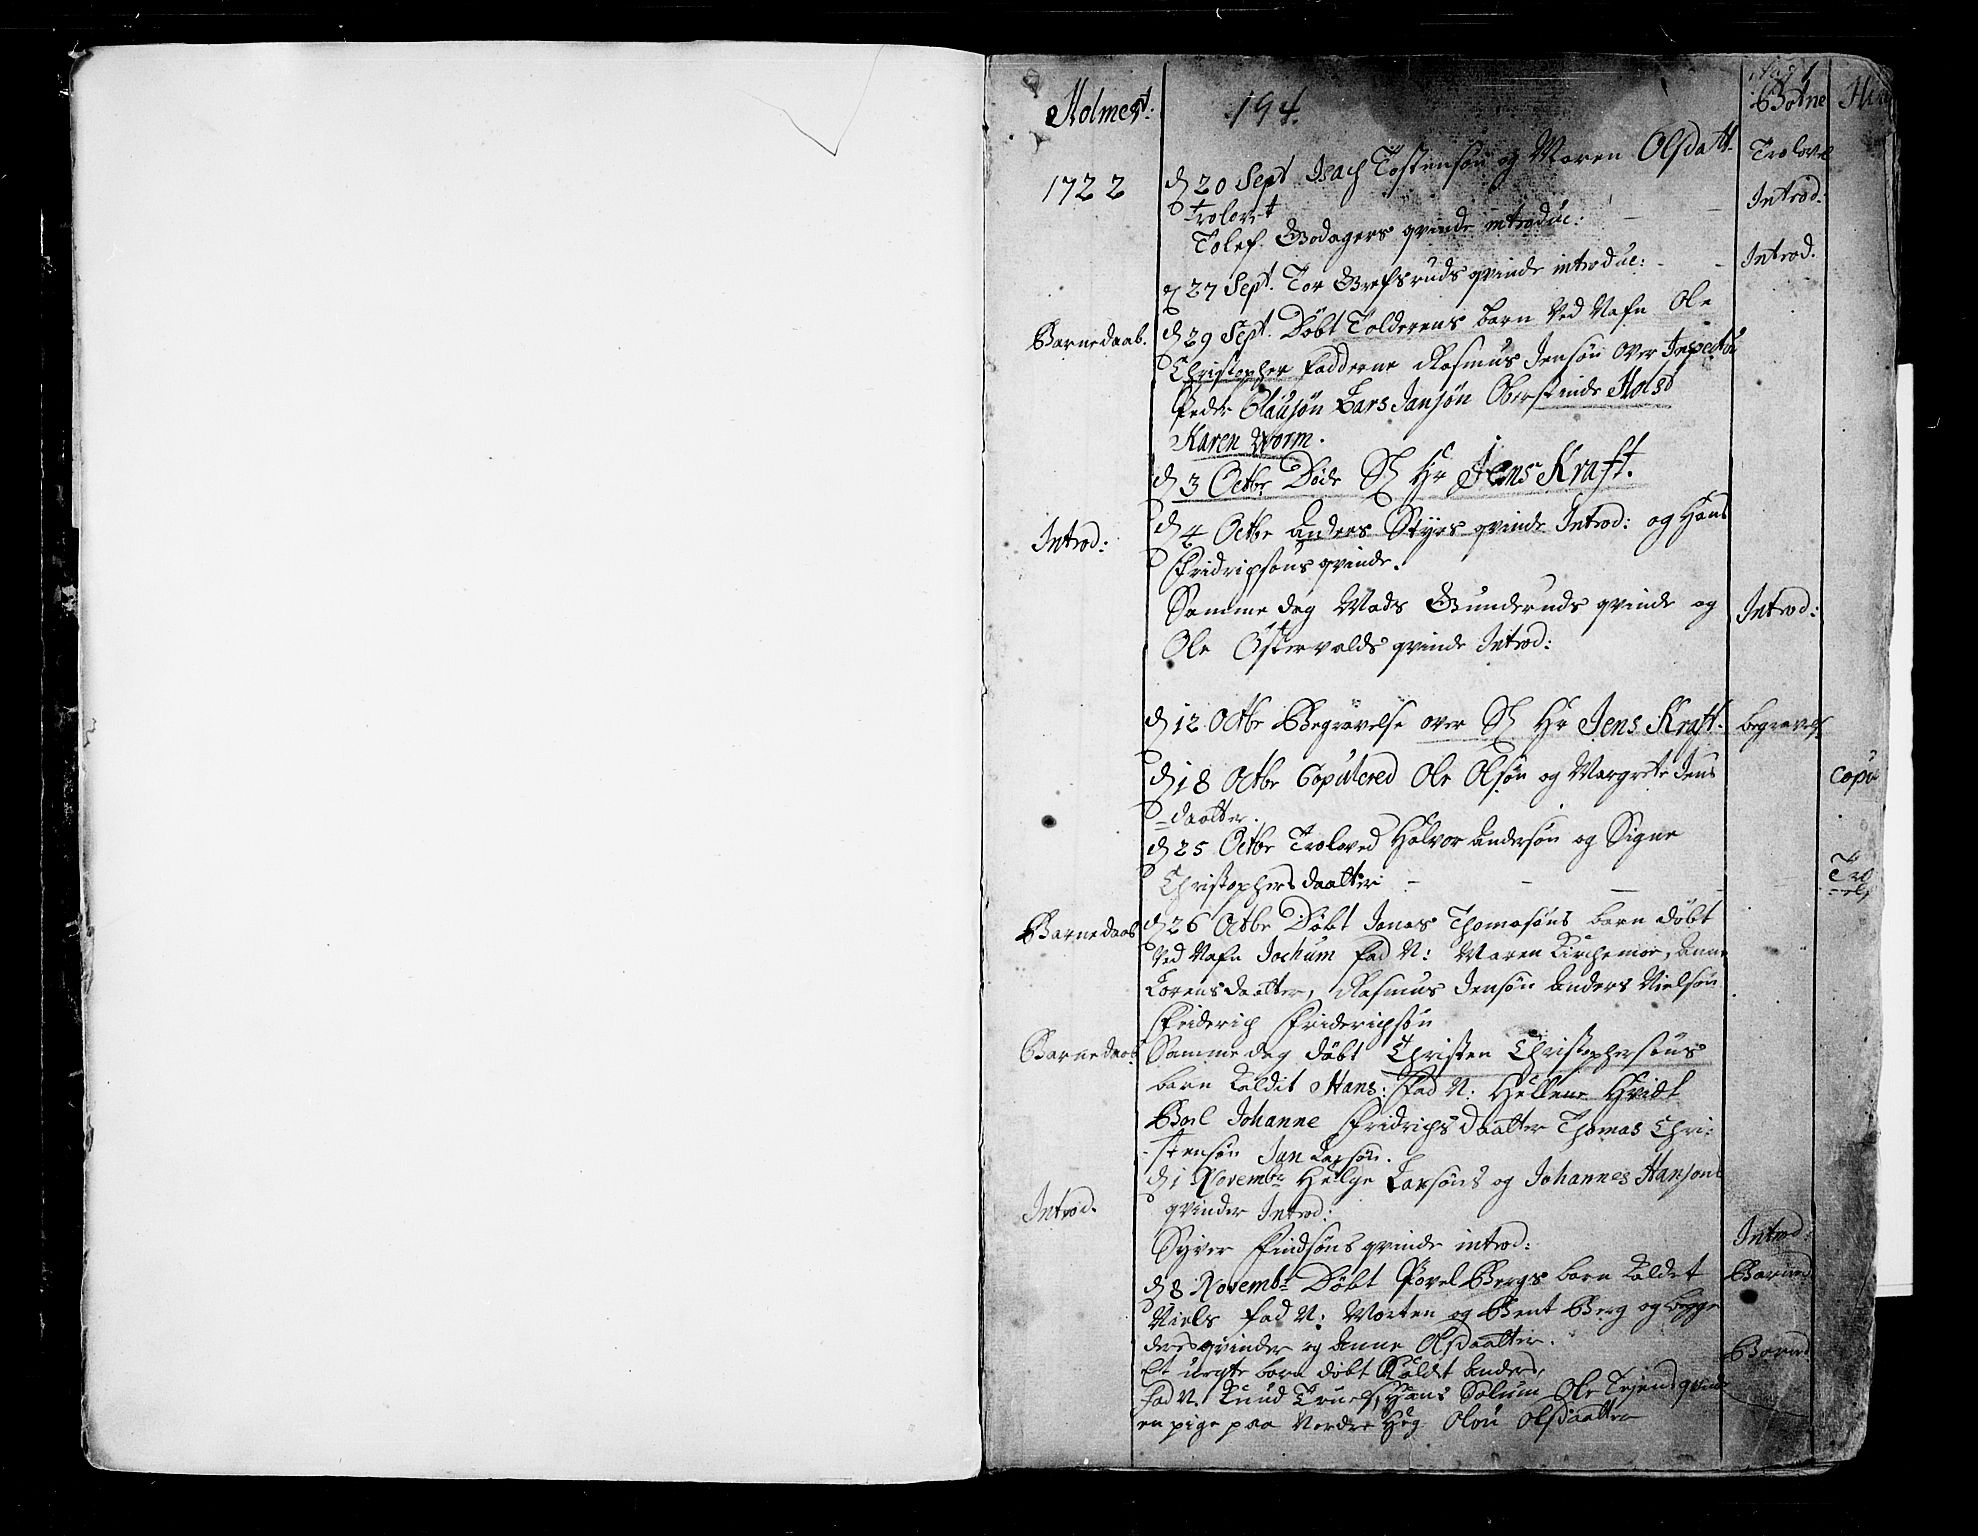 Pag 1
Holmest: 194. Botne
1722 d 20 Sept Isach Tostensøn og Maren Olsdatt. Trolovet
Trolovet
Tolef Bodagers qvinde introduc: Introd:
d 27 Sept. Tor Grefsruds qvinde introduc: Introd.
Barnedaab. d 29 Sept. Døbt Tolderens barn ved Nafn Ole
Christopher fadderne Rasmus Jensøn Over Inspecteur
Peder Clausøn Lars Jansøn Oberstinde Holst
Karen Worm.
d 3 Octbr Døde Sl Hr Jens Kraft.
Introd: d 4 Octbr Anders Styrs qvinde Introd: og Hans
Fridrichsøns qvinde.
Samme dag Mads Gunderuds qvinde og Introd:
Ole Østervolds qvinde Introd:
d 12 Octbr Begravelse over Sl Hr Jens Kraft. begravels
d 18 Octbr Copulered Ole Olsøn og Margrete Jens Copu
-daatter.
d 25 Octbr Troloved Halvor Andersøn og Signe
Christophersdaatter
Barnedaab d 26 Octbr Døbt Jonas Thomasøns barn døbt
ved Nafn Jochum fad N: Maren Kirchemoe, Anne
Lorensdaatter, Rasmus Jensøn Anders Nielsøn
Friderich Friderichsøn
Barnedaab Samme dag døbt Christen Christophersøns
barn Kaldet Hans: Fad N: Hellene Hvidt
Boel Johanne Fridrichsdaatter Thomas Chri-
-stensøn Jan Larsøn.
d 1 Novembr Helge Larsøns og Johannes Hansøns
Introd. qvinder Introd:
Syver Findsøns qvinde introd: Introd:
d 8 Novembr Døbt Povel Bergs barn Kaldet Barned
Niels fad N: Morten og Bent Berg og begge
deres qvinder og Anne Olsdaatter.
Et uegte barn døbt Kaldet Anders, Barned
fad N. Knud Truels, Hans Solum Ole Tejens qvinde
en pige paa Nordre Høg Olou Olsdaatter